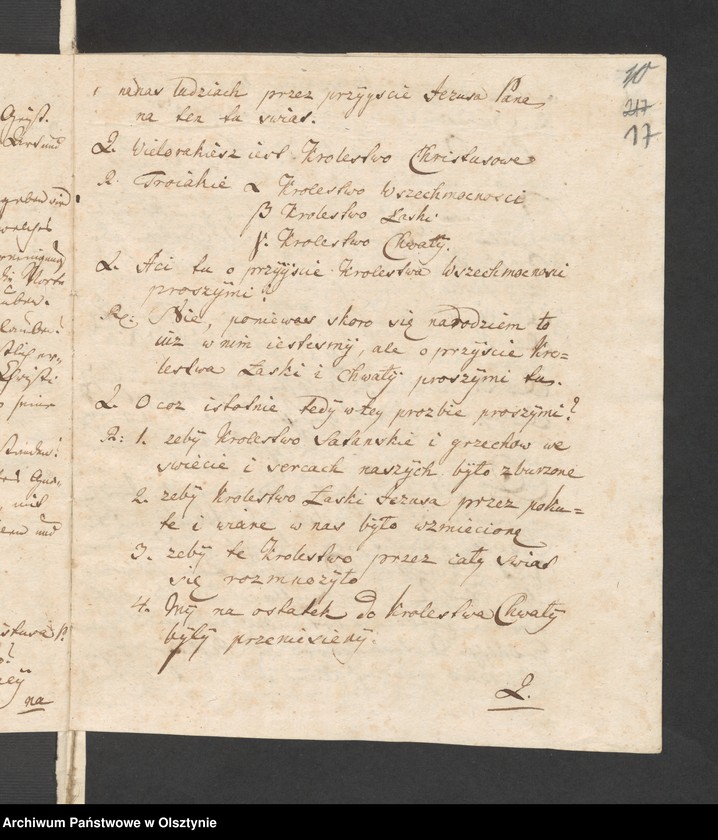 10
217
17
nadnas ludziach przez przyyscie Jezusa Pana
na ten tu swiat.
Q. Wielorakiesz iest Krolestwo Christusowe
R. Troiakie α Krolestwo Wszechmocnosci
β Krolestwo Łaski
γ. Krolestwo Chwały.
Q. Aci tu o przyyscie Krolestwa Wszechmocnosci
proszymi?
R: Nie, poniewas skoro się narodziem to
iuz w nim iestesmy, ale o przyscie Kro=
lestwa Łaski i Chwały proszymi tu.
Q. O coz istotnie tedy w tey prozbie proszymi?
R: 1. zeby Krolestwo Satanskie i grzechow we
swiecie i sercach naszych było zburzone
2. zeby Krolestwo Łaski Jezusa przez poku=
te i wiare w nas było wzmiecione
3. zeby te Krolestwo przez cały swiat
się rozmnozyło
4. My na ostatek do Krolestwa Chwały
były przeniesieny.
Q.
na
Archiwum Państwowe w Olsztynie